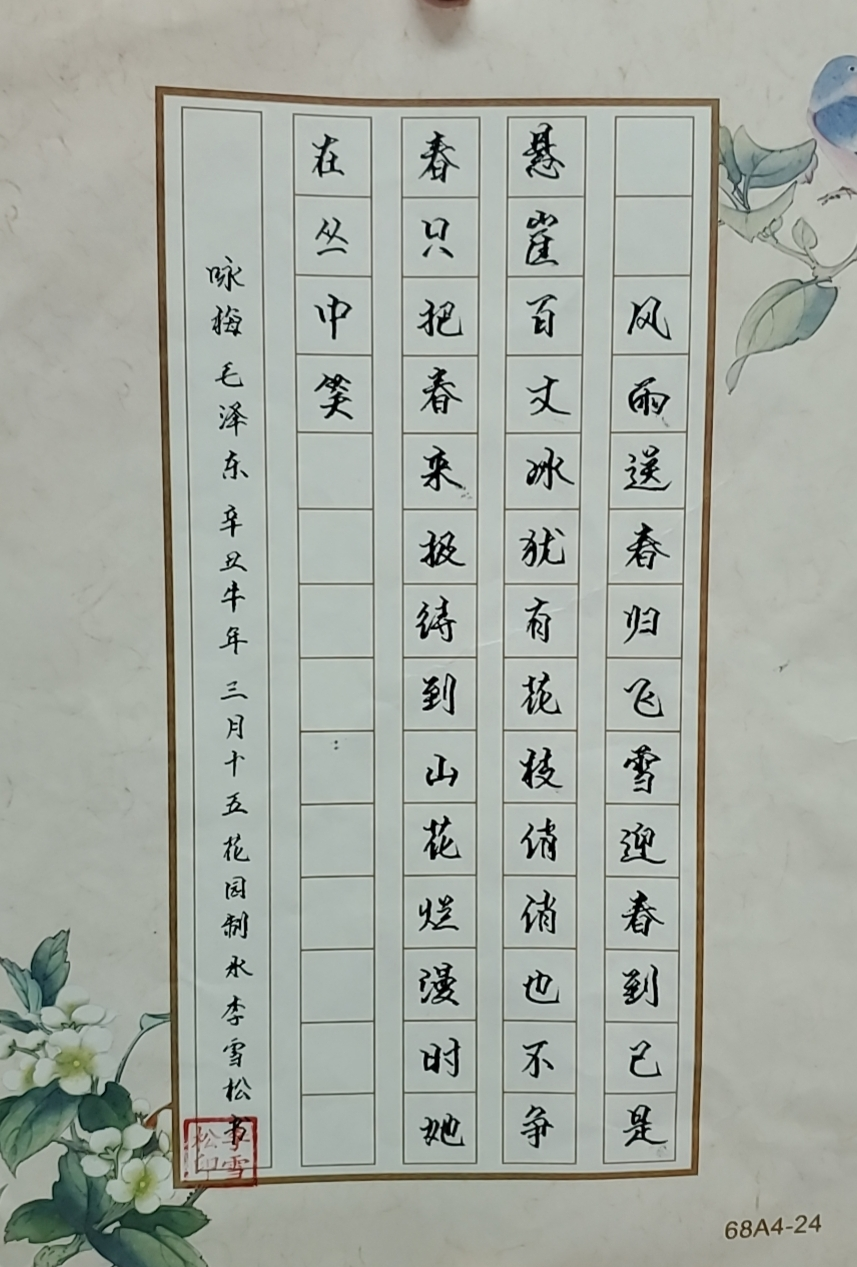 风雨送春归飞雪迎春到已是
悬崖百丈冰犹有花枝俏俏也不争
春只把春来报待到山花烂漫时她
在丛中笑
咏梅 毛泽东 辛丑牛年 三月十五 花园制永李雪松书
李雪松印
68A4-24